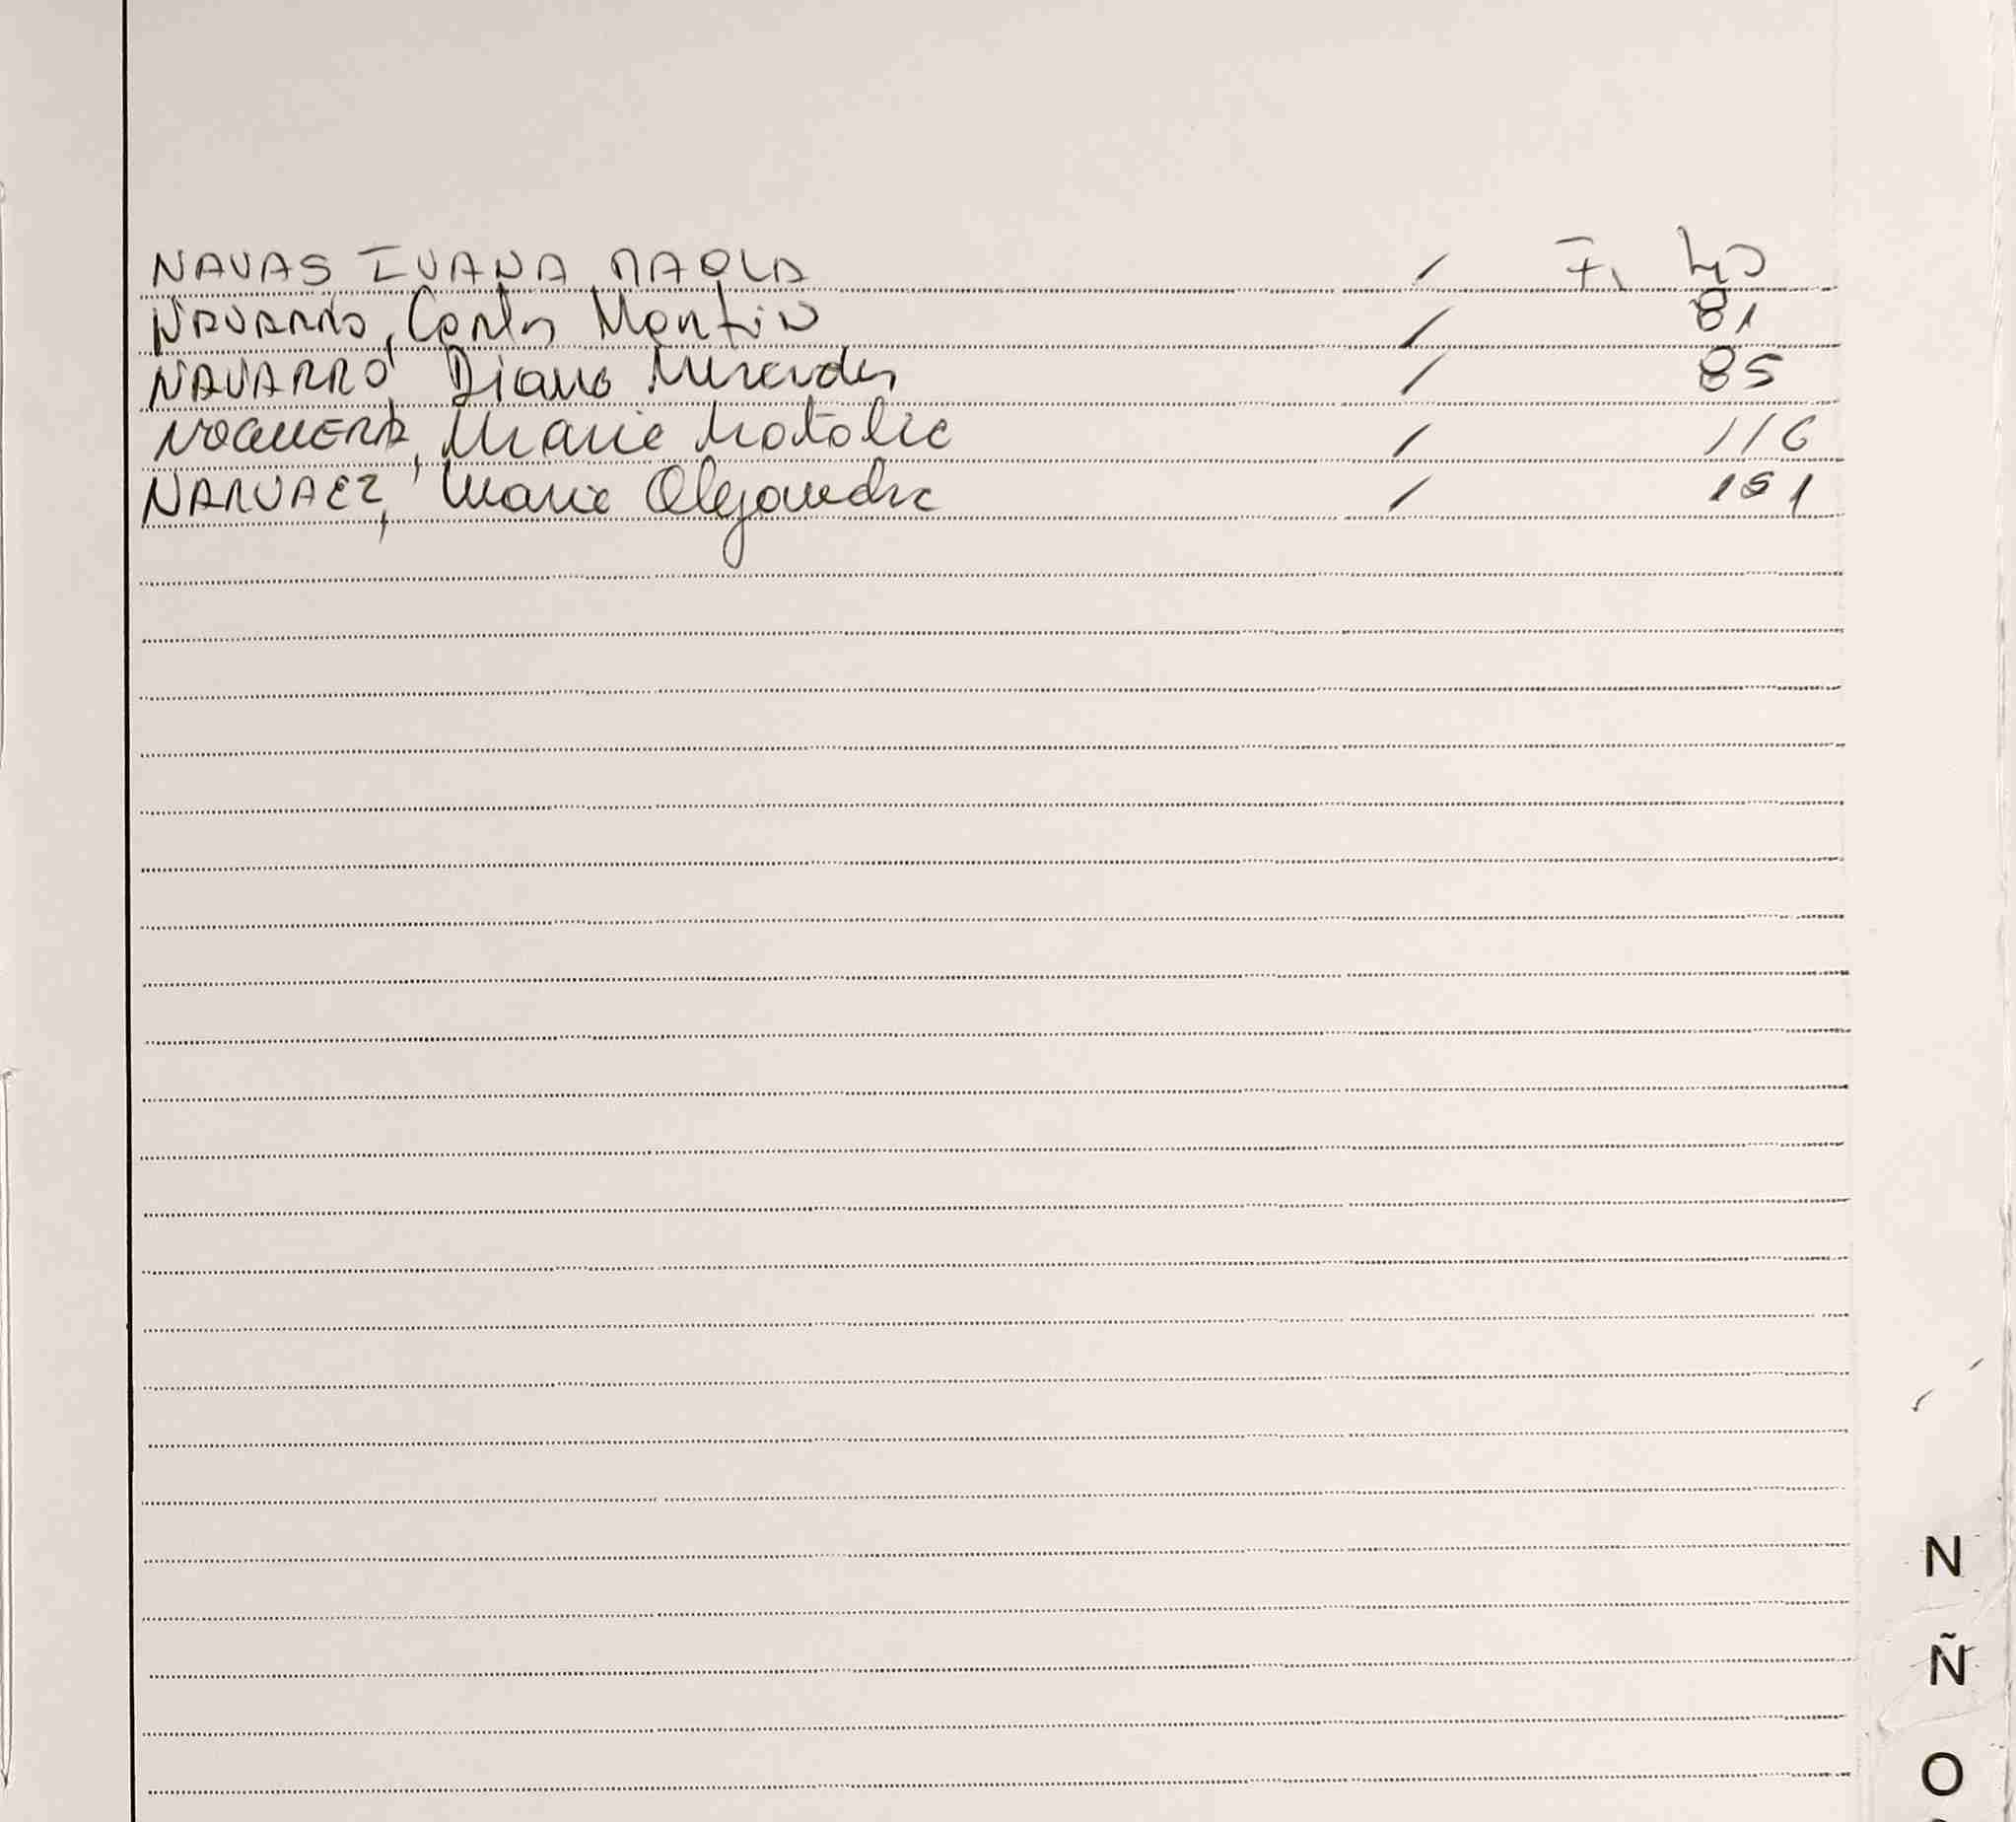 NAVAS IVANA PAOLA / F. 40
NAVARRO, Carlos Martin / 81
NAVARRO, Diana Mercedes / 85
NOGUERA, Maria Natalia / 116
NARVAEZ, Maria Alejandra / 151
N
Ñ
O